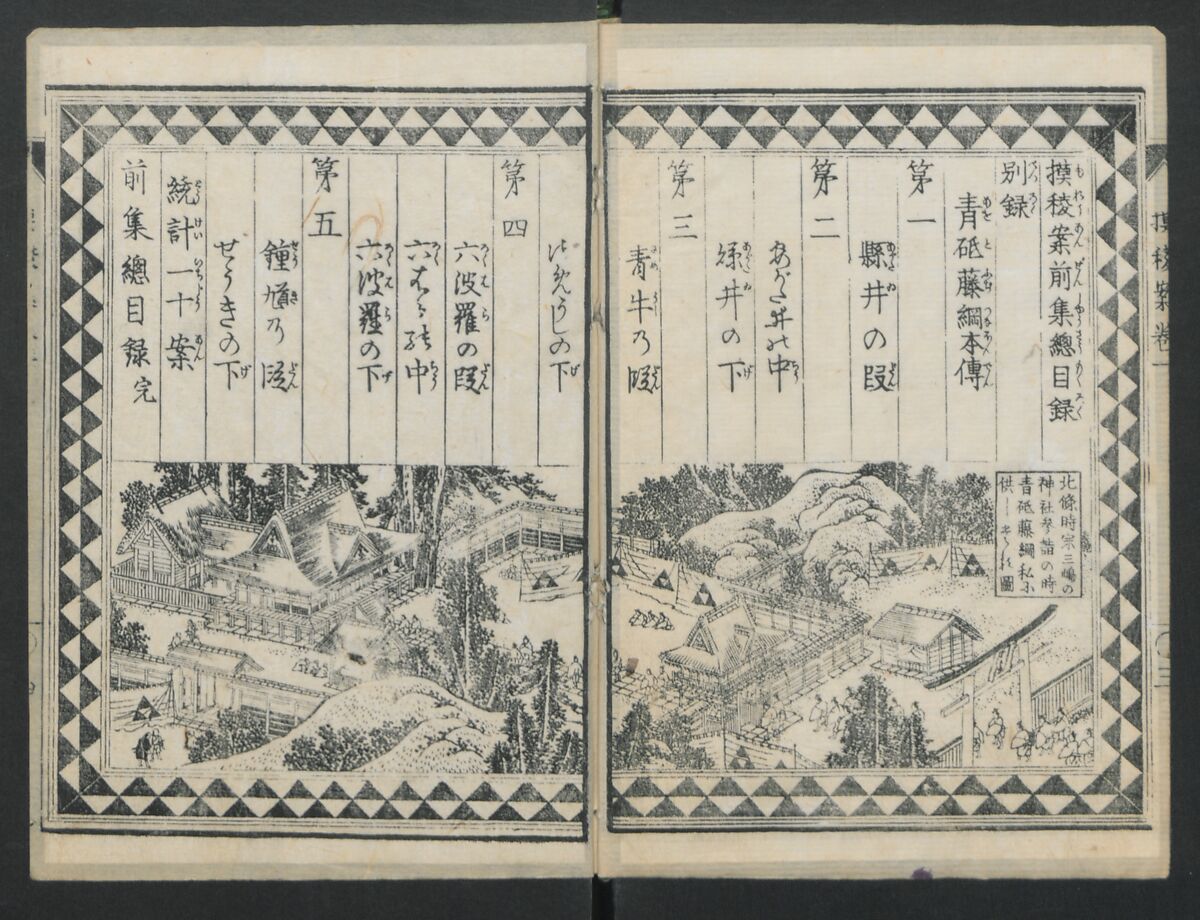 摸稜案卷一
摸稜案前集總目録
別録
青砥藤綱本傳
第一
縣井の段
第二
あがた井の中
縣井の下
第三
青牛乃段
うしの下
第四
六波羅の段
六はら能中
六波羅の下
第五
鐘馗乃段
せうきの下
統計一十案
前集總目録完
北條時宗三嶋の
神社参詣の時
青砥藤綱私小
供し 圖